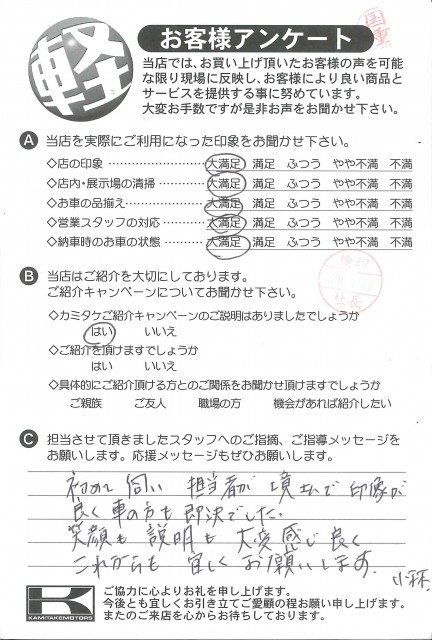 軽
お客様アンケート
国重
当店では、お買い上げ頂いたお客様の声を可能
な限り現場に反映し、お客様により良い商品と
サービスを提供する事に努めています。
大変お手数ですが是非お声をお聞かせ下さい。
A 当店を実際にご利用になった印象をお聞かせ下さい。
◇店の印象 …………………… 大満足 満足 ふつう やや不満 不満
◇店内・展示場の清掃………… 大満足 満足 ふつう やや不満 不満
◇お車の品揃え………………… 大満足 満足 ふつう やや不満 不満
◇営業スタッフの対応………… 大満足 満足 ふつう やや不満 不満
◇納車時のお車の状態………… 大満足 満足 ふつう やや不満 不満
検印
社長
B 当店はご紹介を大切にしております。
ご紹介キャンペーンについてお聞かせ下さい。
◇カミタケご紹介キャンペーンのご説明はありましたでしょうか
はい いいえ
◇ご紹介を頂けますでしょうか
はい いいえ
◇具体的にご紹介頂ける方とのご関係をお聞かせ頂けますでしょうか
ご親族 ご友人 職場の方 機会があれば紹介したい
C 担当させて頂きましたスタッフへのご指摘、ご指導メッセージを
お願いします。応援メッセージもぜひお願いします。
初めて伺い 担当者が 境さんで 印象が
良く車の方も即決でした。
笑顔も 説明も 大変感じ良く
これからも 宜しくお願いします。
小林
K
KAMITAKEMOTORS
ご協力に心よりお礼を申し上げます。
今後とも宜しくお引き立てご愛顧の程お願い申し上げます。
またのご来店を心からお待ちしております。